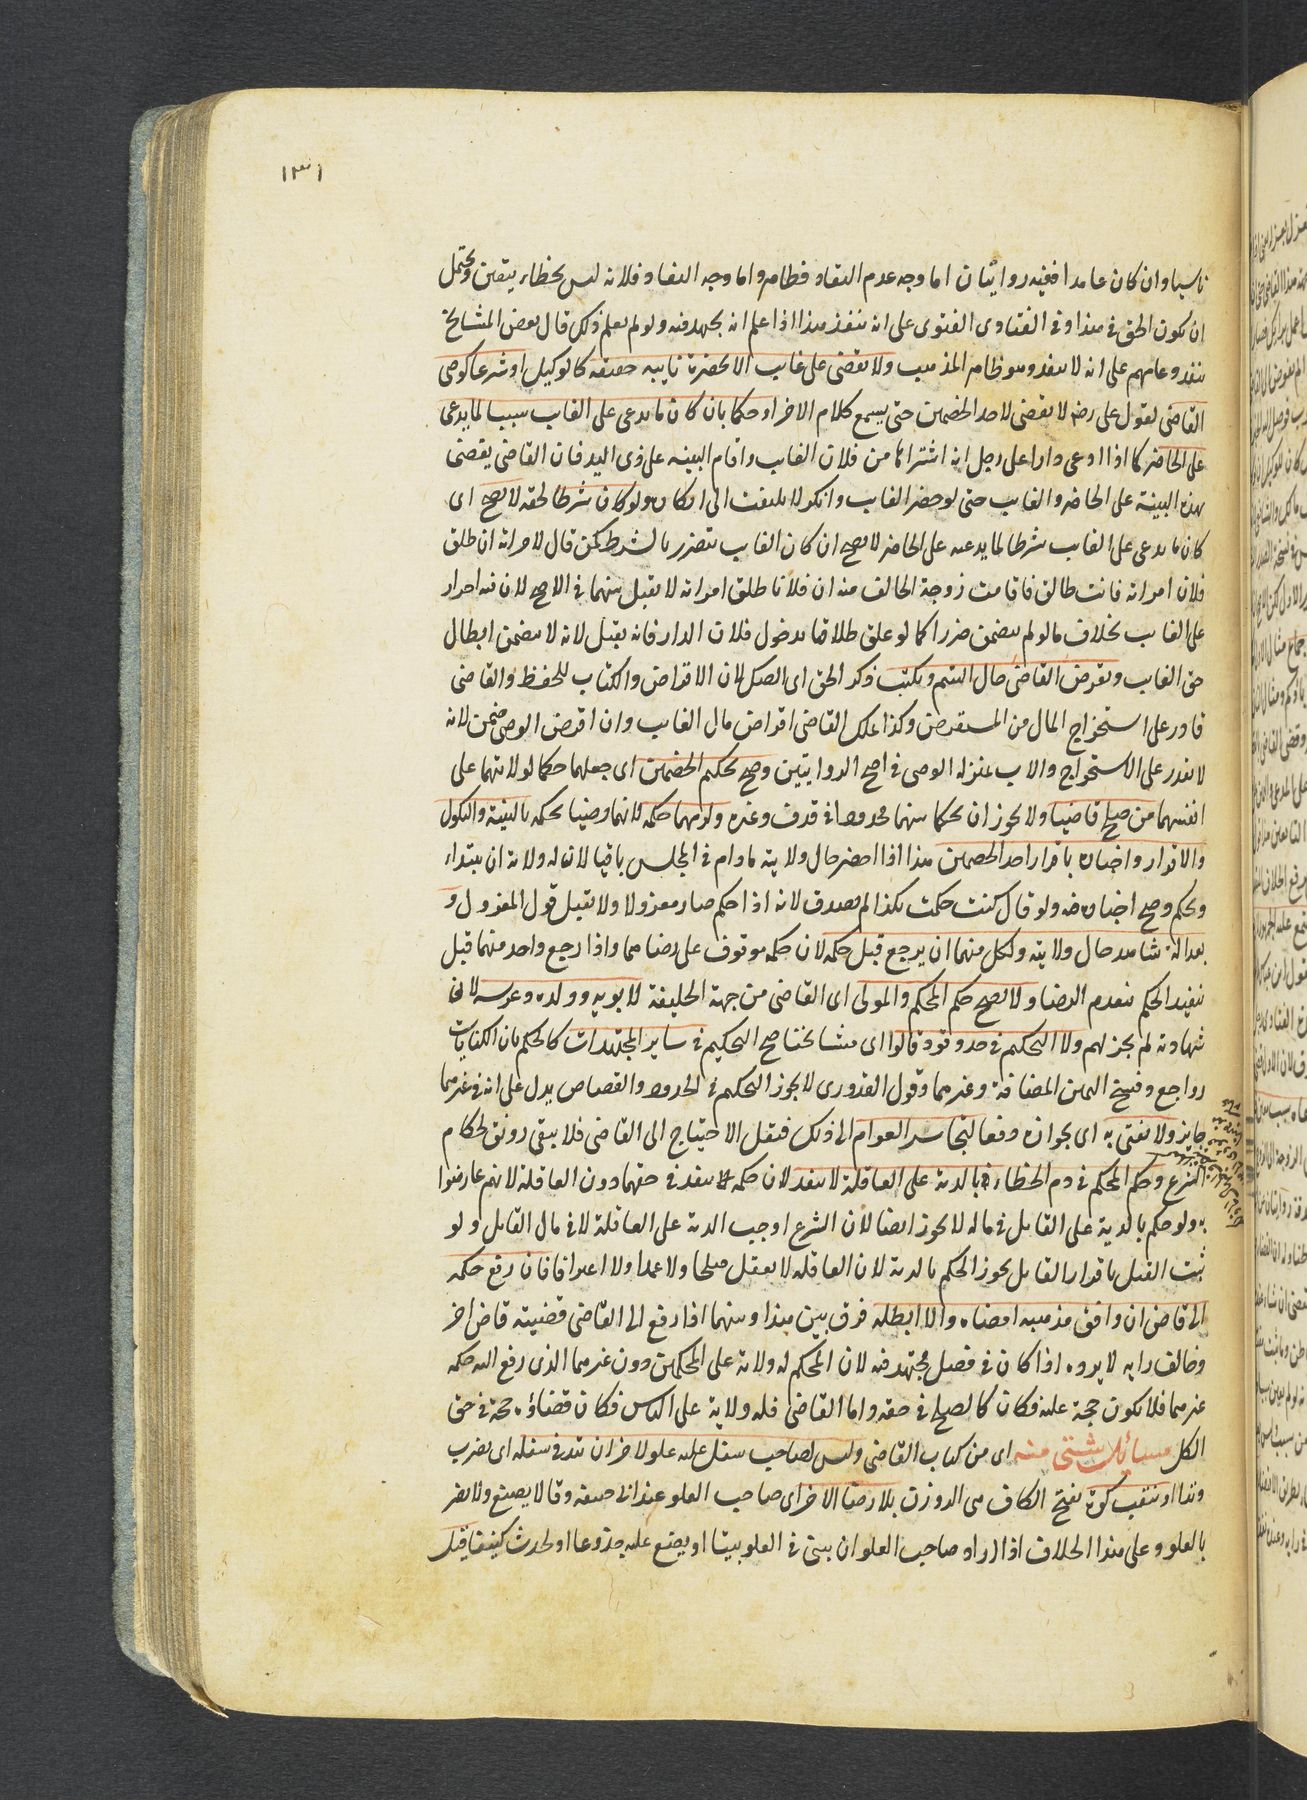 ١٣١
ناسيا وان كان عامدا ففيه روايتان اما وجه عدم النفاذ فظاهر واما وجه النفاذ فلانه ليس بخطاء بيقين ويحتمل
ان يكون الحق في هذا وفي الفتاوى الفتوى على انه ينفذ هذا اذا علم انه مجتهد فيه ولو لم يعلم ذلك قال بعض المشايخ
ينفذ وعامتهم على انه لا ينفذ وهو ظاهر المذهب ولا يقضى على غايب الا بحضرة نايبه حقيقة كالوكيل او شرعا كوصي
القاضي لقوله على رضه لا تقضى لاحد الخصمين حتى يسمع كلام الاخر او حكما بان كان ما يدعى على الغايب سببا لما يدعى
على الحاضر كما اذا ادعى دارا على رجل انه اشتراها من فلان الغايب واقام البينة على ذي اليد فان القاضي يقضى
بهذه البينة على الحاضر والغايب حتى لو حضر الغايب وانكر لا يلتفت الى انكاره ولو كان شرطا لحقه لا يصح اى
كان ما يدعى على الغايب شرطا لما يدعيه على الحاضر لا يصح ان كان الغايب يتضرر بالشرط كمن قال لامراته ان طلق
فلان امراته فانت طالق فاقامت زوجة الحالف منه ان فلانا طلق امراته لا تقبل بينتها في الاصح لان فيه اضرار
على الغايب بخلاف ما لو لم يتضمن ضررا كما لو علق طلاقها بدخول فلان الدار فانه يقبل لانه لا يتضمن ابطال
حق الغايب ويقرض القاضي مال اليتيم ويكتب ذكر الحق اى الصك لان الاقراض والكتاب للحفظ والقاضي
قادر على استخراج المال من المستقرض وكذا يملك القاضي اقراض مال الغايب وان اقرض الوصي ضمن لانه
لا يقدر على الاستخراج والاب بمنزلة الوصي في اصح الروايتين وصح تحكيم الخصمين اى جعلهما حكما لولايتهما على
انفسهما من صلح قاضيا ولا يجوز ان يحكما بينهما محدودا في قذف وغيره ولزمهما حكمه لانهما رضيا بحكمه بالبينة والنكول
والاقرار واخباره باقرار احد الخصمين هذا اذا اخبر حال ولايته مادام في المجلس باقيا لان له ولاية ان يبتداء
ويحكم وصح اخباره فيه ولو قال كنت حكمت بكذا لم يصدق لانه اذا حكم صار معزولا ولا يقبل قول المعزول و
بعدالة شاهد حال ولايته ولكل منهما ان يرجع قبل حكمه لان حكمه موقوف على رضاهما واذا رجع واحد منهما قبل
تنفيذ الحكم ينعدم الرضا ولا يصح حكم المحكم والمولى اى القاضي من جهة الخليفة لابويه وولده وعرسه لان
شهادته لم يجز لهم ولا التحكيم في حد وقود قالوا اى مشايخنا صح التحكيم في ساير المجتهدات كالحكم بان الكنايات
رواجع وفسخ اليمين المضافة وغيرهما وقول القدوري لا يجوز التحكيم في الحدود والقصاص يدل على انه في غيرهما
جايز ولا يفتى به اى بجوازه دفعا لتجاسر العوام الى ذلك فيقل الاحتياج الى القاضي فلا يبقى رونق لحكام
الشرع وحكم المحكم في دم الخطاء بالدية على العاقلة لا ينفذ لان حكمه ينفذ في حقهما دون العاقلة لانهم ما رضوا
به ولو حكم بالدية على القاتل في ماله لا يجوز ايضا لان الشرع اوجب الدية على العاقلة لا في مال القاتل ولو
ثبت القتل باقرار القاتل يجوز الحكم بالدية لان العاقلة لا يعقل صلحا ولا عمدا ولا اعترافا فان رفع حكمه
الى قاض ان وافق مذهبه امضاه والا ابطله فرق بين هذا وبينهما اذا رفع الى القاضي قضية قاض اخر
وخالف رايه لا يرده اذا كان في فصل مجتهد فيه لان المحكم له ولاية على المحكمين دون غيرهما الذي رفع اليه حكمه
غيرهما فلا يكون حجة عليه فكان كالصلح في حقه واما القاضي فله ولاية على الناس فكان قضاؤه حجة في حق
الكل مسائل شتى منه اى من كتاب القاضي وليس لصاحب سفل عليه علو لاخر ان يتد في سفله اى يضرب
وتدا او ينقب كوة بفتح الكاف هي الروزن بلا رضا الاخر اى صاحب العلو عند ابى حنيفة وقالا يصنع ولا يضر
بالعلو وعلى هذا الخلاف اذا اراد صاحب العلو ان يبنى في العلو بيتا او يضع عليه جذوعا او يحدث كنيفا قيل